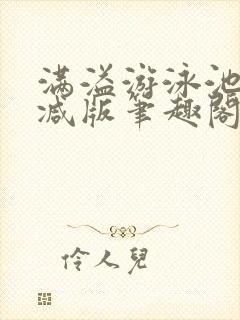 满溢游泳池
减版笔趣阁
伶人兒